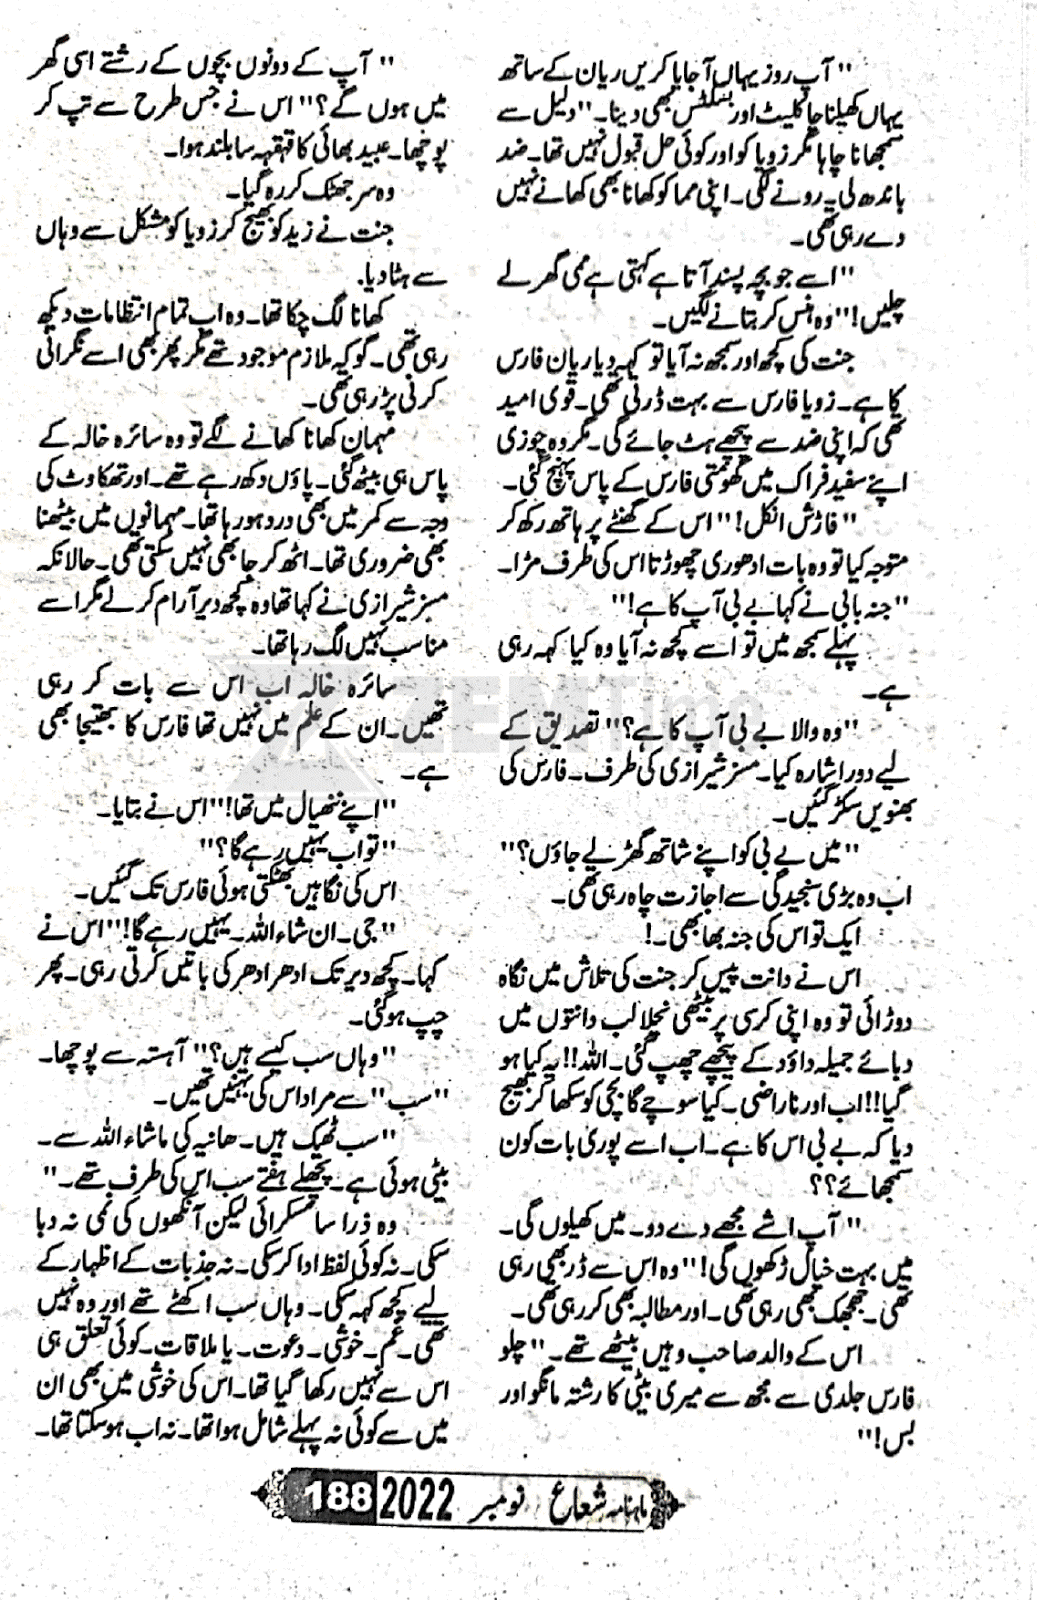 "آپ روز یہاں آ جایا کریں ریان کے ساتھ
یہاں کھیلنا چاکلیٹ اور بسکٹس بھی دینا۔" دلیل سے
سمجھانا چاہا مگر زویا کو اور کوئی حل قبول نہیں تھا۔ ضد
باندھ لی۔ رونے لگی۔ اپنی مما کو کھانا بھی کھانے نہیں
دے رہی تھی۔
"اسے جو بچہ پسند آتا ہے کہتی ہے ممی گھر لے
چلیں!" وہ ہنس کر بتانے لگیں۔
جنت کی کچھ اور سمجھ نہ آیا تو کہہ دیا ریان فارس
کا ہے۔ زویا فارس سے بہت ڈرتی تھی۔ قوی امید
تھی کہ اپنی ضد سے پیچھے ہٹ جائے گی۔ مگر وہ چوزی
اپنے سفید فراک میں گھومتی فارس کے پاس پہنچ گئی۔
"فاژش انکل!" اس کے گھٹنے پر ہاتھ رکھ کر
متوجہ کیا تو وہ بات ادھوری چھوڑتا اس کی طرف مڑا۔
"جنہ بابی نے کہا بے بی آپ کا ہے!"
پہلے سمجھ میں تو اسے کچھ نہ آیا وہ کیا کہہ رہی
ہے۔
"وہ والا بے بی آپ کا ہے؟" تصدیق کے
لیے دور اشارہ کیا۔ مسز شیرازی کی طرف۔ فارس کی
بھنویں سکڑ گئیں۔
"میں بے بی کو اپنے شاتھ گھڑ لے جاؤں؟"
اب وہ بڑی سنجیدگی سے اجازت چاہ رہی تھی۔
ایک تو اس کی جنہ بھابھی۔!
اس نے دانت پیس کر جنت کی تلاش میں نگاہ
دوڑائی تو وہ اپنی کرسی پر بیٹھی نچلا لب دانتوں میں
دبائے جمیلہ داؤد کے پیچھے چھپ گئی۔ اللہ!! یہ کیا ہو
گیا!!! اب اور ناراضی۔ کیا سوچے گا بچی کو سکھا کر بھیج
دیا کہ بے بی اس کا ہے۔ اب اسے پوری بات کون
سمجھائے؟؟
"آپ اشے مجھے دے دو۔ میں کھیلوں گی۔
میں بہت خیال ڑکھوں گی!" وہ اس سے ڈر بھی رہی
تھی۔ جھجھک بھی رہی تھی۔ اور مطالبہ بھی کر رہی تھی۔
اس کے والد صاحب وہیں بیٹھے تھے۔ "چلو
فارس جلدی سے مجھ سے میری بیٹی کا رشتہ مانگو اور
بس!"
"آپ کے دونوں بچوں کے رشتے اسی گھر
میں ہوں گے؟" اس نے جس طرح سے تپ کر
پوچھا۔ عبید بھائی کا قہقہہ سا بلند ہوا۔
وہ سر جھٹک کر رہ گیا۔
جنت نے زید کو بھیج کر زویا کو مشکل سے وہاں
سے ہٹا دیا۔
کھانا لگ چکا تھا۔ وہ اب تمام انتظامات دیکھ
رہی تھی۔ گو کہ ملازم موجود تھے مگر پھر بھی اسے نگرانی
کرنی پڑ رہی تھی۔
مہمان کھانا کھانے لگے تو وہ سائرہ خالہ کے
پاس ہی بیٹھ گئی۔ پاؤں دکھ رہے تھے۔ اور تھکاوٹ کی
وجہ سے کمر میں بھی درد ہو رہا تھا۔ مہمانوں میں بیٹھنا
بھی ضروری تھا۔ اٹھ کر جا بھی نہیں سکتی تھی۔ حالانکہ
مسز شیرازی نے کہا تھا وہ کچھ دیر آرام کر لے مگر اسے
مناسب نہیں لگ رہا تھا۔
سائرہ خالہ اب اس سے بات کر رہی
تھیں۔ ان کے علم میں نہیں تھا فارس کا بھتیجا بھی
ہے۔
"اپنے ننھیال میں تھا!" اس نے بتایا۔
"تو اب یہیں رہے گا؟"
اس کی نگاہیں بھٹکتی ہوئی فارس تک گئیں۔
"جی۔ ان شاء اللہ۔ یہیں رہے گا!" اس نے
کہا۔ کچھ دیر تک ادھر ادھر کی باتیں کرتی رہی۔ پھر
چپ ہو گئی۔
"وہاں سب کیسے ہیں؟" آہستہ سے پوچھا۔
"سب" سے مراد اس کی بہنیں تھیں۔
"سب ٹھیک ہیں۔ ہانیہ کی ماشاء اللہ سے۔
بیٹی ہوئی ہے۔ پچھلے ہفتے سب اس کی طرف تھے۔"
وہ ذرا سا مسکرائی لیکن آنکھوں کی نمی نہ دبا
سکی۔ نہ کوئی لفظ ادا کر سکی۔ نہ جذبات کے اظہار کے
لیے کچھ کہہ سکی۔ وہاں سب اکٹھے تھے اور وہ نہیں
تھی۔ غم۔ خوشی۔ دعوت۔ یا ملاقات۔ کوئی تعلق ہی
اس سے نہیں رکھا گیا تھا۔ اس کی خوشی میں بھی ان
میں سے کوئی نہ پہلے شامل ہوا تھا۔ نہ اب ہو سکتا تھا۔
ماہنامہ شعاع نومبر 2022 188
ZEMTime